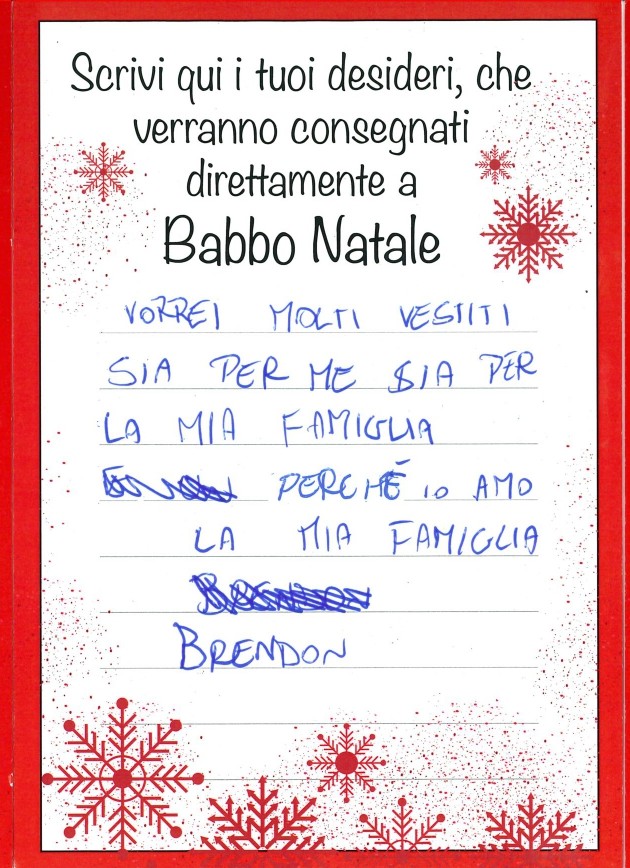 Scrivi qui i tuoi desideri, che
verranno consegnati
direttamente a
Babbo Natale
VORREI MOLTI VESTITI
SIA PER ME SIA PER
LA MIA FAMIGLIA
PERCHÉ IO AMO
LA MIA FAMIGLIA
BRENDON